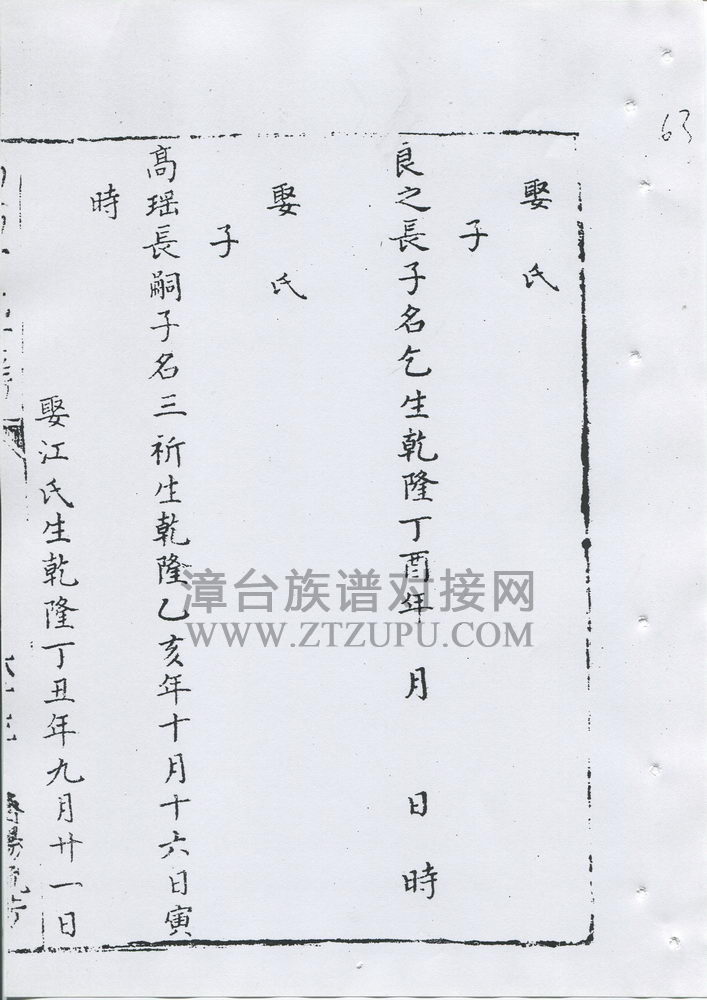 63
娶　氏
子
良之長子名乞生乾隆丁酉年　月　日時
娶　氏
子
高瑶長嗣子名三祈生乾隆乙亥年十月十六日寅
時
娶江氏生乾隆丁丑年九月廿一日
漳台族谱对接网
WWW.ZTZUPU.COM